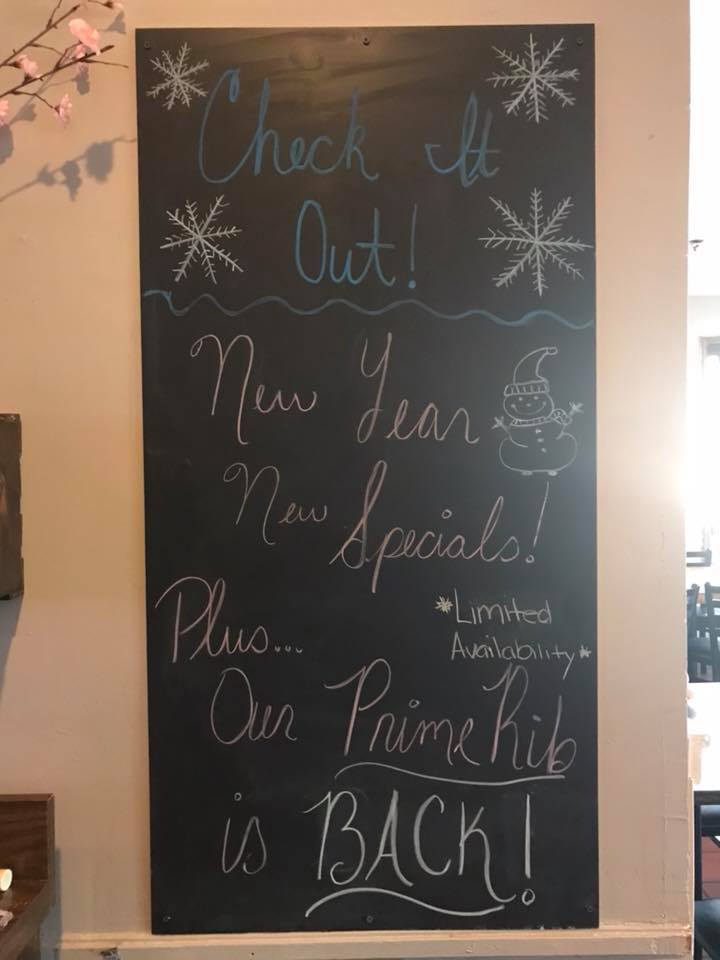 Check It
Out!
New Year
New Specials!
Plus...
*Limited
Availability*
Our Prime Rib
is BACK!